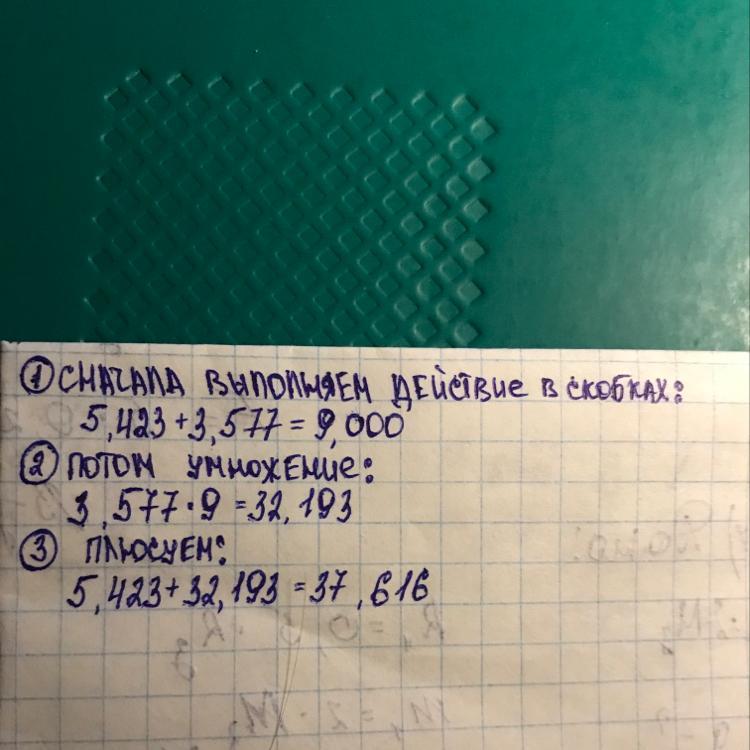 ① СНАЧАЛА ВЫПОЛНЯЕМ ДЕЙСТВИЕ В СКОБКАХ:
5,423+3,577=9,000
② ПОТОМ УМНОЖЕНИЕ:
3,577·9=32,193
③ ПЛЮСУЕМ:
5,423+32,193=37,616